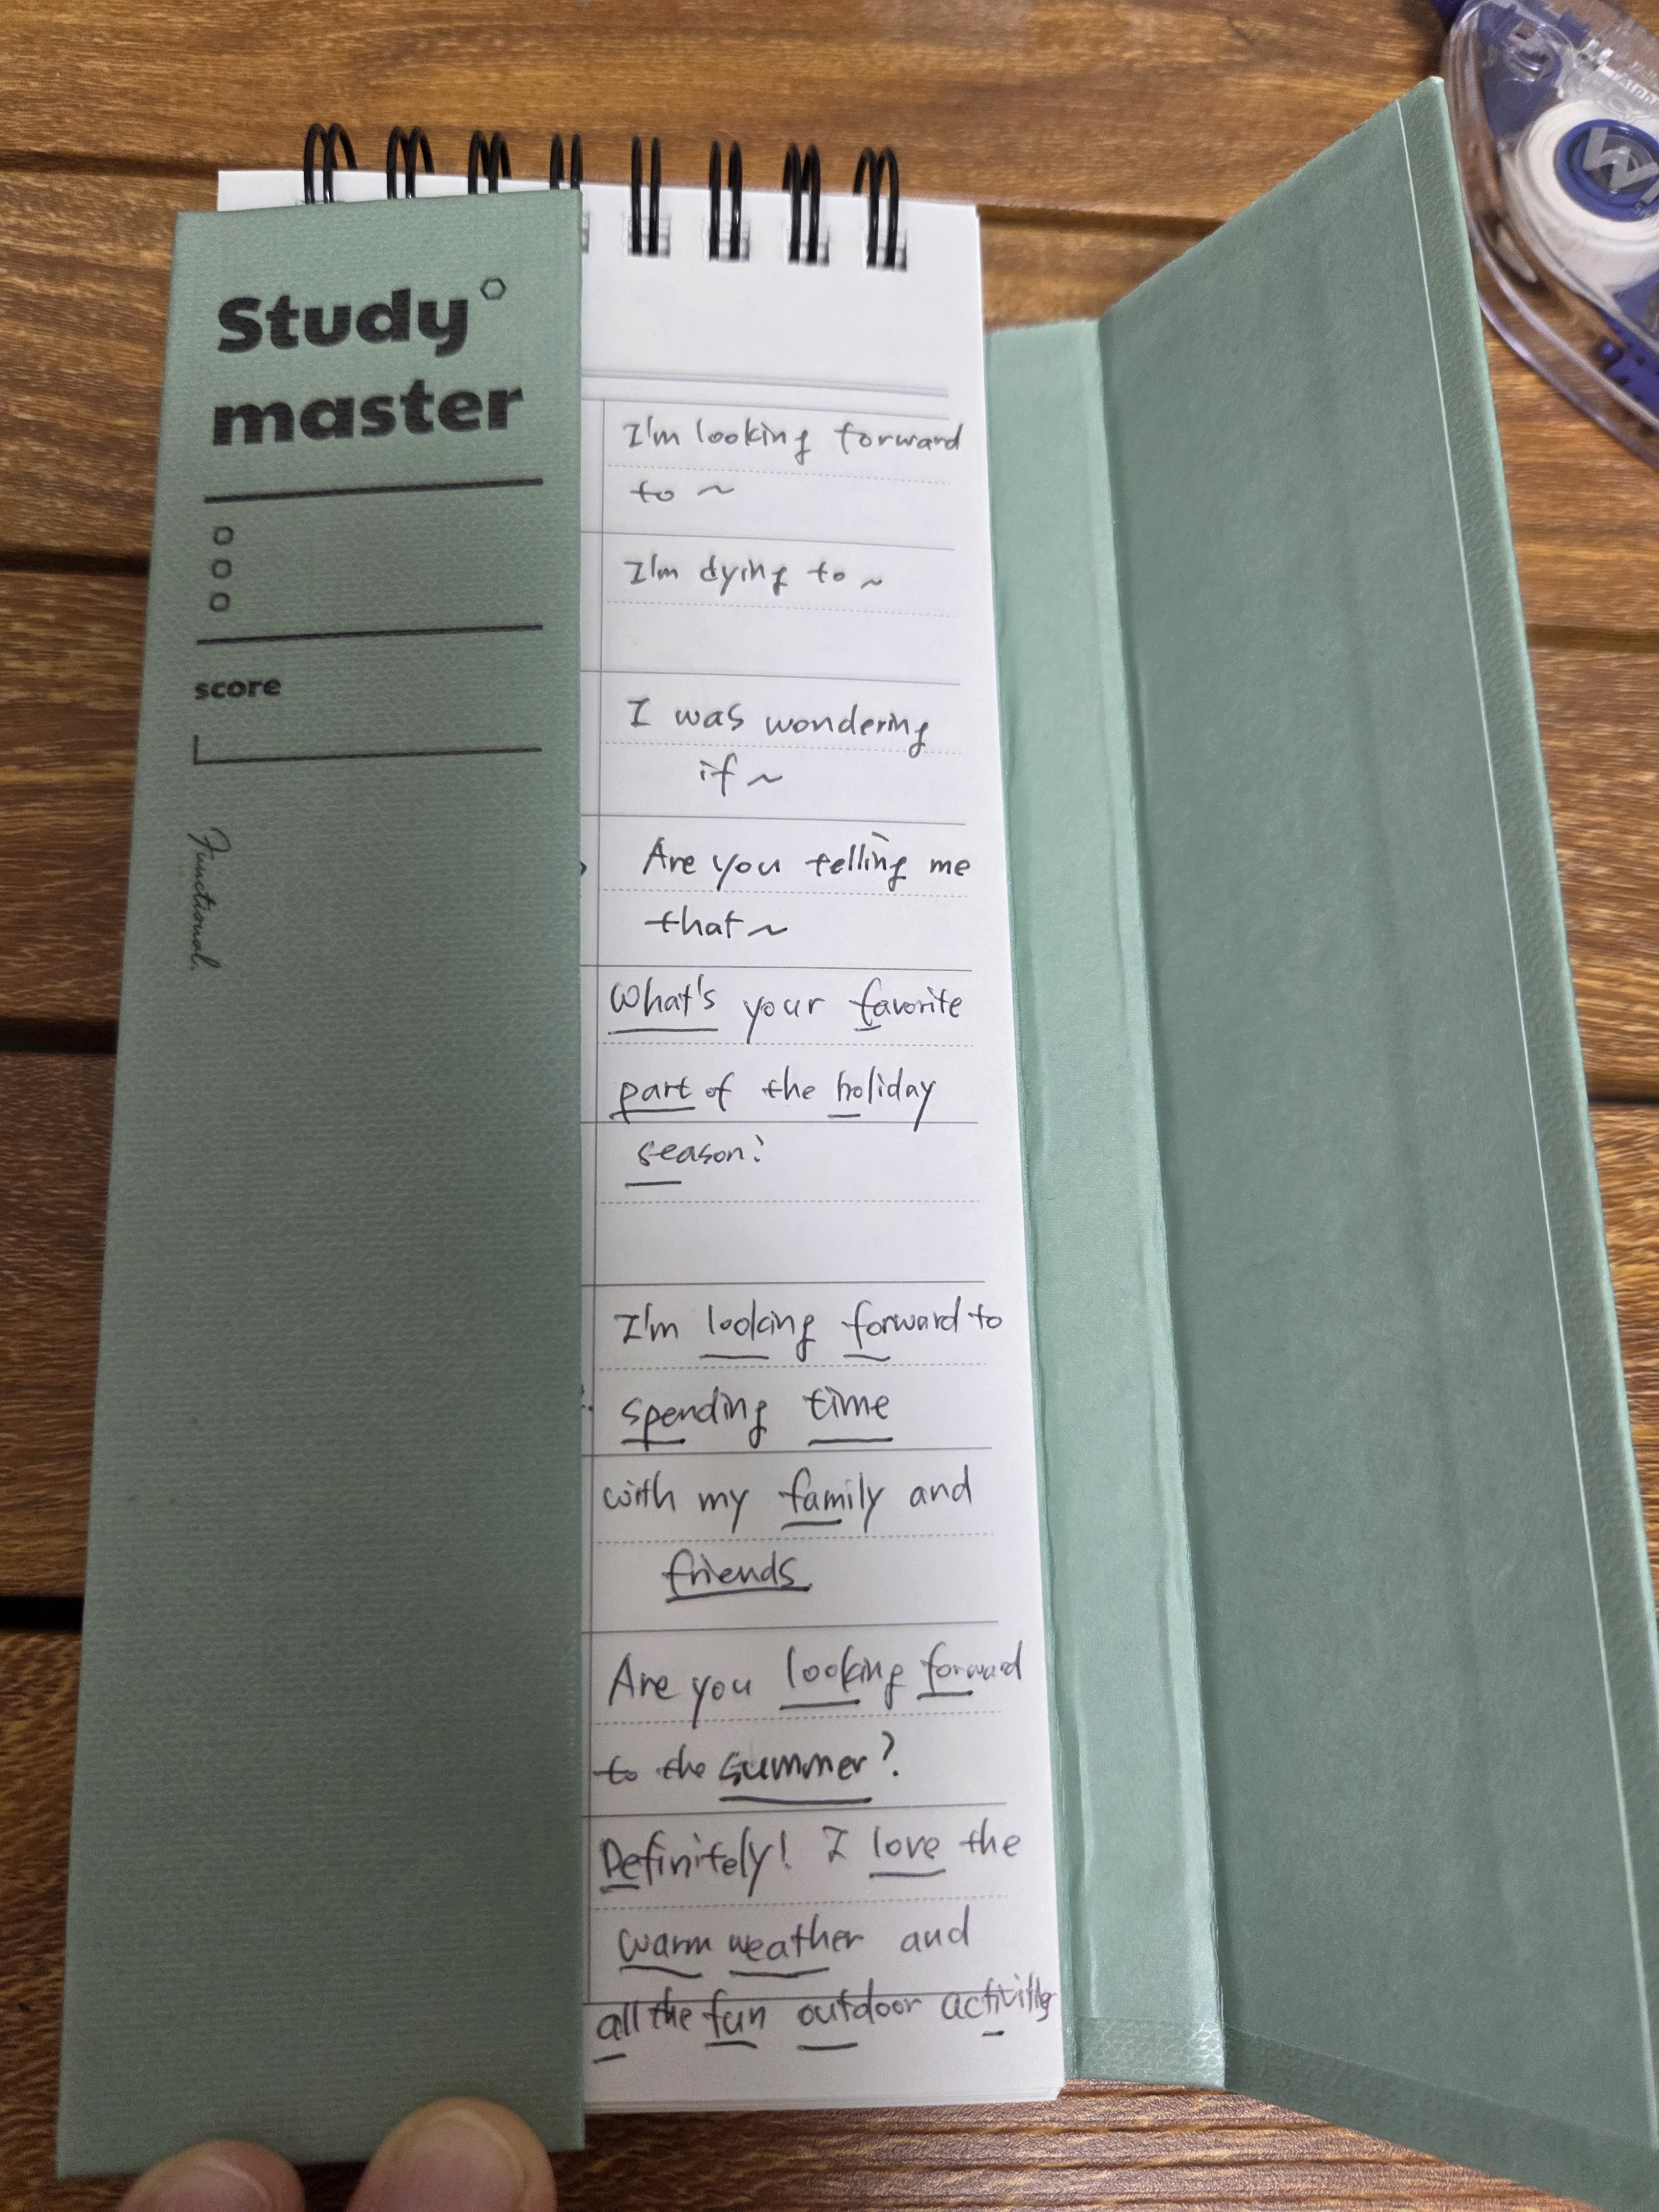 Study
master
score
Functional.
I'm looking forward
to ~
I'm dying to ~
I was wondering
if ~
Are you telling me
that ~
What's your favorite
part of the holiday
season?
I'm looking forward to
spending time
with my family and
friends.
Are you looking forward
to the summer?
Definitely! I love the
warm weather and
all the fun outdoor